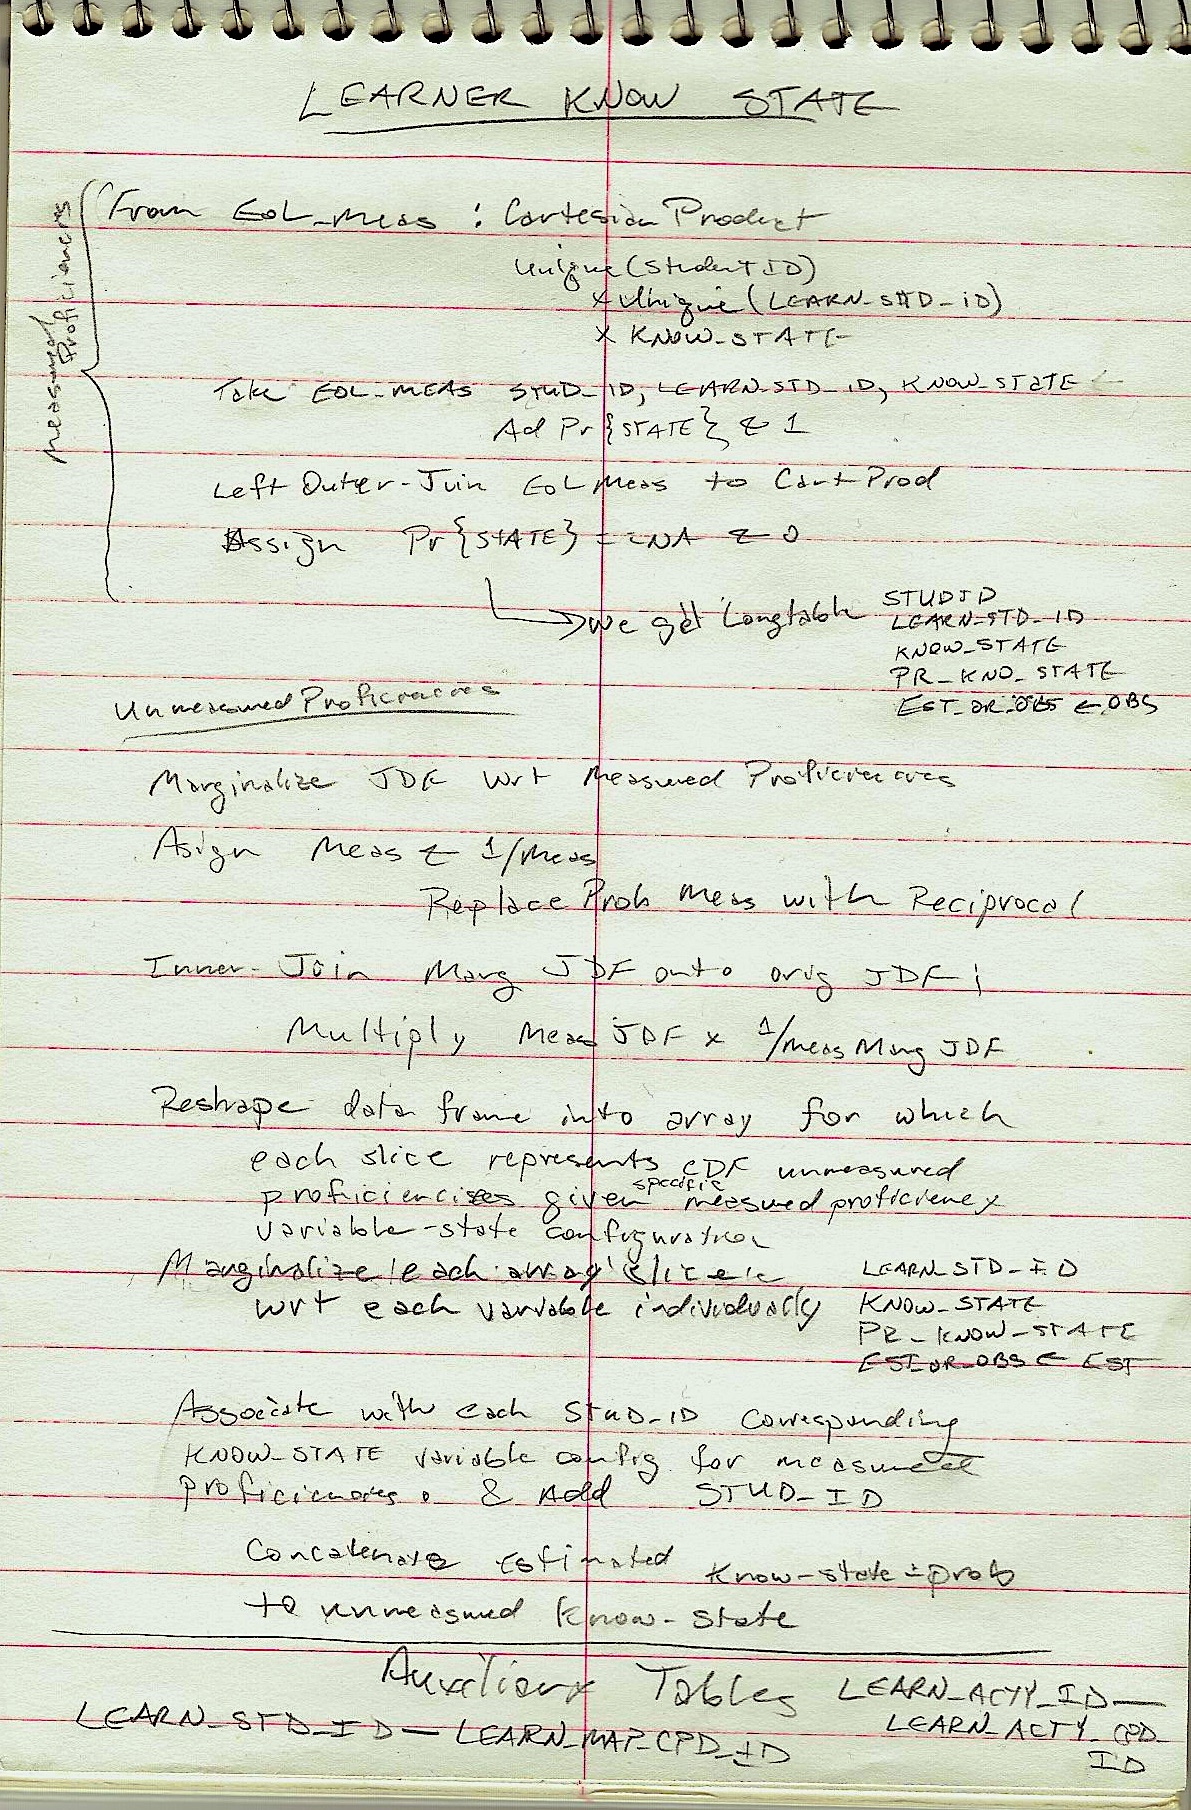 LEARNER KNOW STATE
Measured Proficiencies
From EOL_Meas : Cartesian Product
Unique (Student ID)
x Unique (LEARN_STD_ID)
x KNOW_STATE
Take EOL_MEAS STUD_ID, LEARN_STD_ID, KNOW_STATE
Ad Pr{STATE} ← 1
Left Outer-Join EOL Meas to Cart Prod
Assign Pr{STATE} = NA ← 0
→ we get Longtable
STUDID
LEARN_STD_ID
KNOW_STATE
PR_KNO_STATE
EST_OR_OBS ← OBS
Unmeasured Proficiencies
Marginalize JDF wrt Measured Proficiencies
Asign Meas ← 1/Meas
Replace Prob Meas with Reciprocal
Inner-Join Marg JDF onto orig JDF;
Multiply Meas JDF x 1/meas Marg JDF
Reshape data frame into array for which
each slice represents CDF unmeasured
proficiencies given specific measured proficiency
variable-state configuration
Marginalize each array slice
wrt each variable individually
LEARN_STD_ID
KNOW_STATE
PR_KNOW_STATE
EST_OR_OBS ← EST
Associate with each STUD_ID corresponding
KNOW_STATE variable config for measured
proficiencies & Add STUD_ID
Concatenate Estimated Know-state prob
to unmeasured Know-State
Auxiliary Tables
LEARN_ACTY_ID —
LEARN_ACTY_CPD_
ID
LEARN_STD_ID — LEARN_MAP_CPD_ID